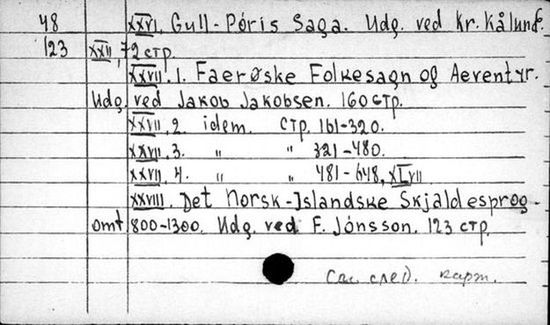 48 XXVI. Gull-Póris Saga. Udg. ved Kr. Kålund.
123 XXII, 72 стр.
XXVII. 1. Faerøske Folkesagn og Aeventyr.
Udg. ved Jakob Jakobsen. 160 стр.
XXVII, 2. idem. стр. 161-320.
XXVII, 3. " " 321-480.
XXVII, 4. " " 481-648, XLVII
XXVIII. Det Norsk-Islandske Skjaldesprog
omt. 800-1300. Udg. ved F. Jónsson. 123 стр.
См. след. карт.